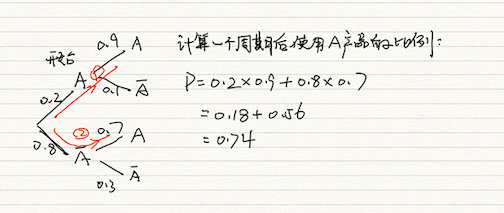 计算一个周期后使用A产品的比例:
开始
0.9 A
A
①
0.1 Ā
0.2
P=0.2×0.9+0.8×0.7
=0.18+0.56
=0.74
② 0.7 A
0.8
Ā
0.3 Ā